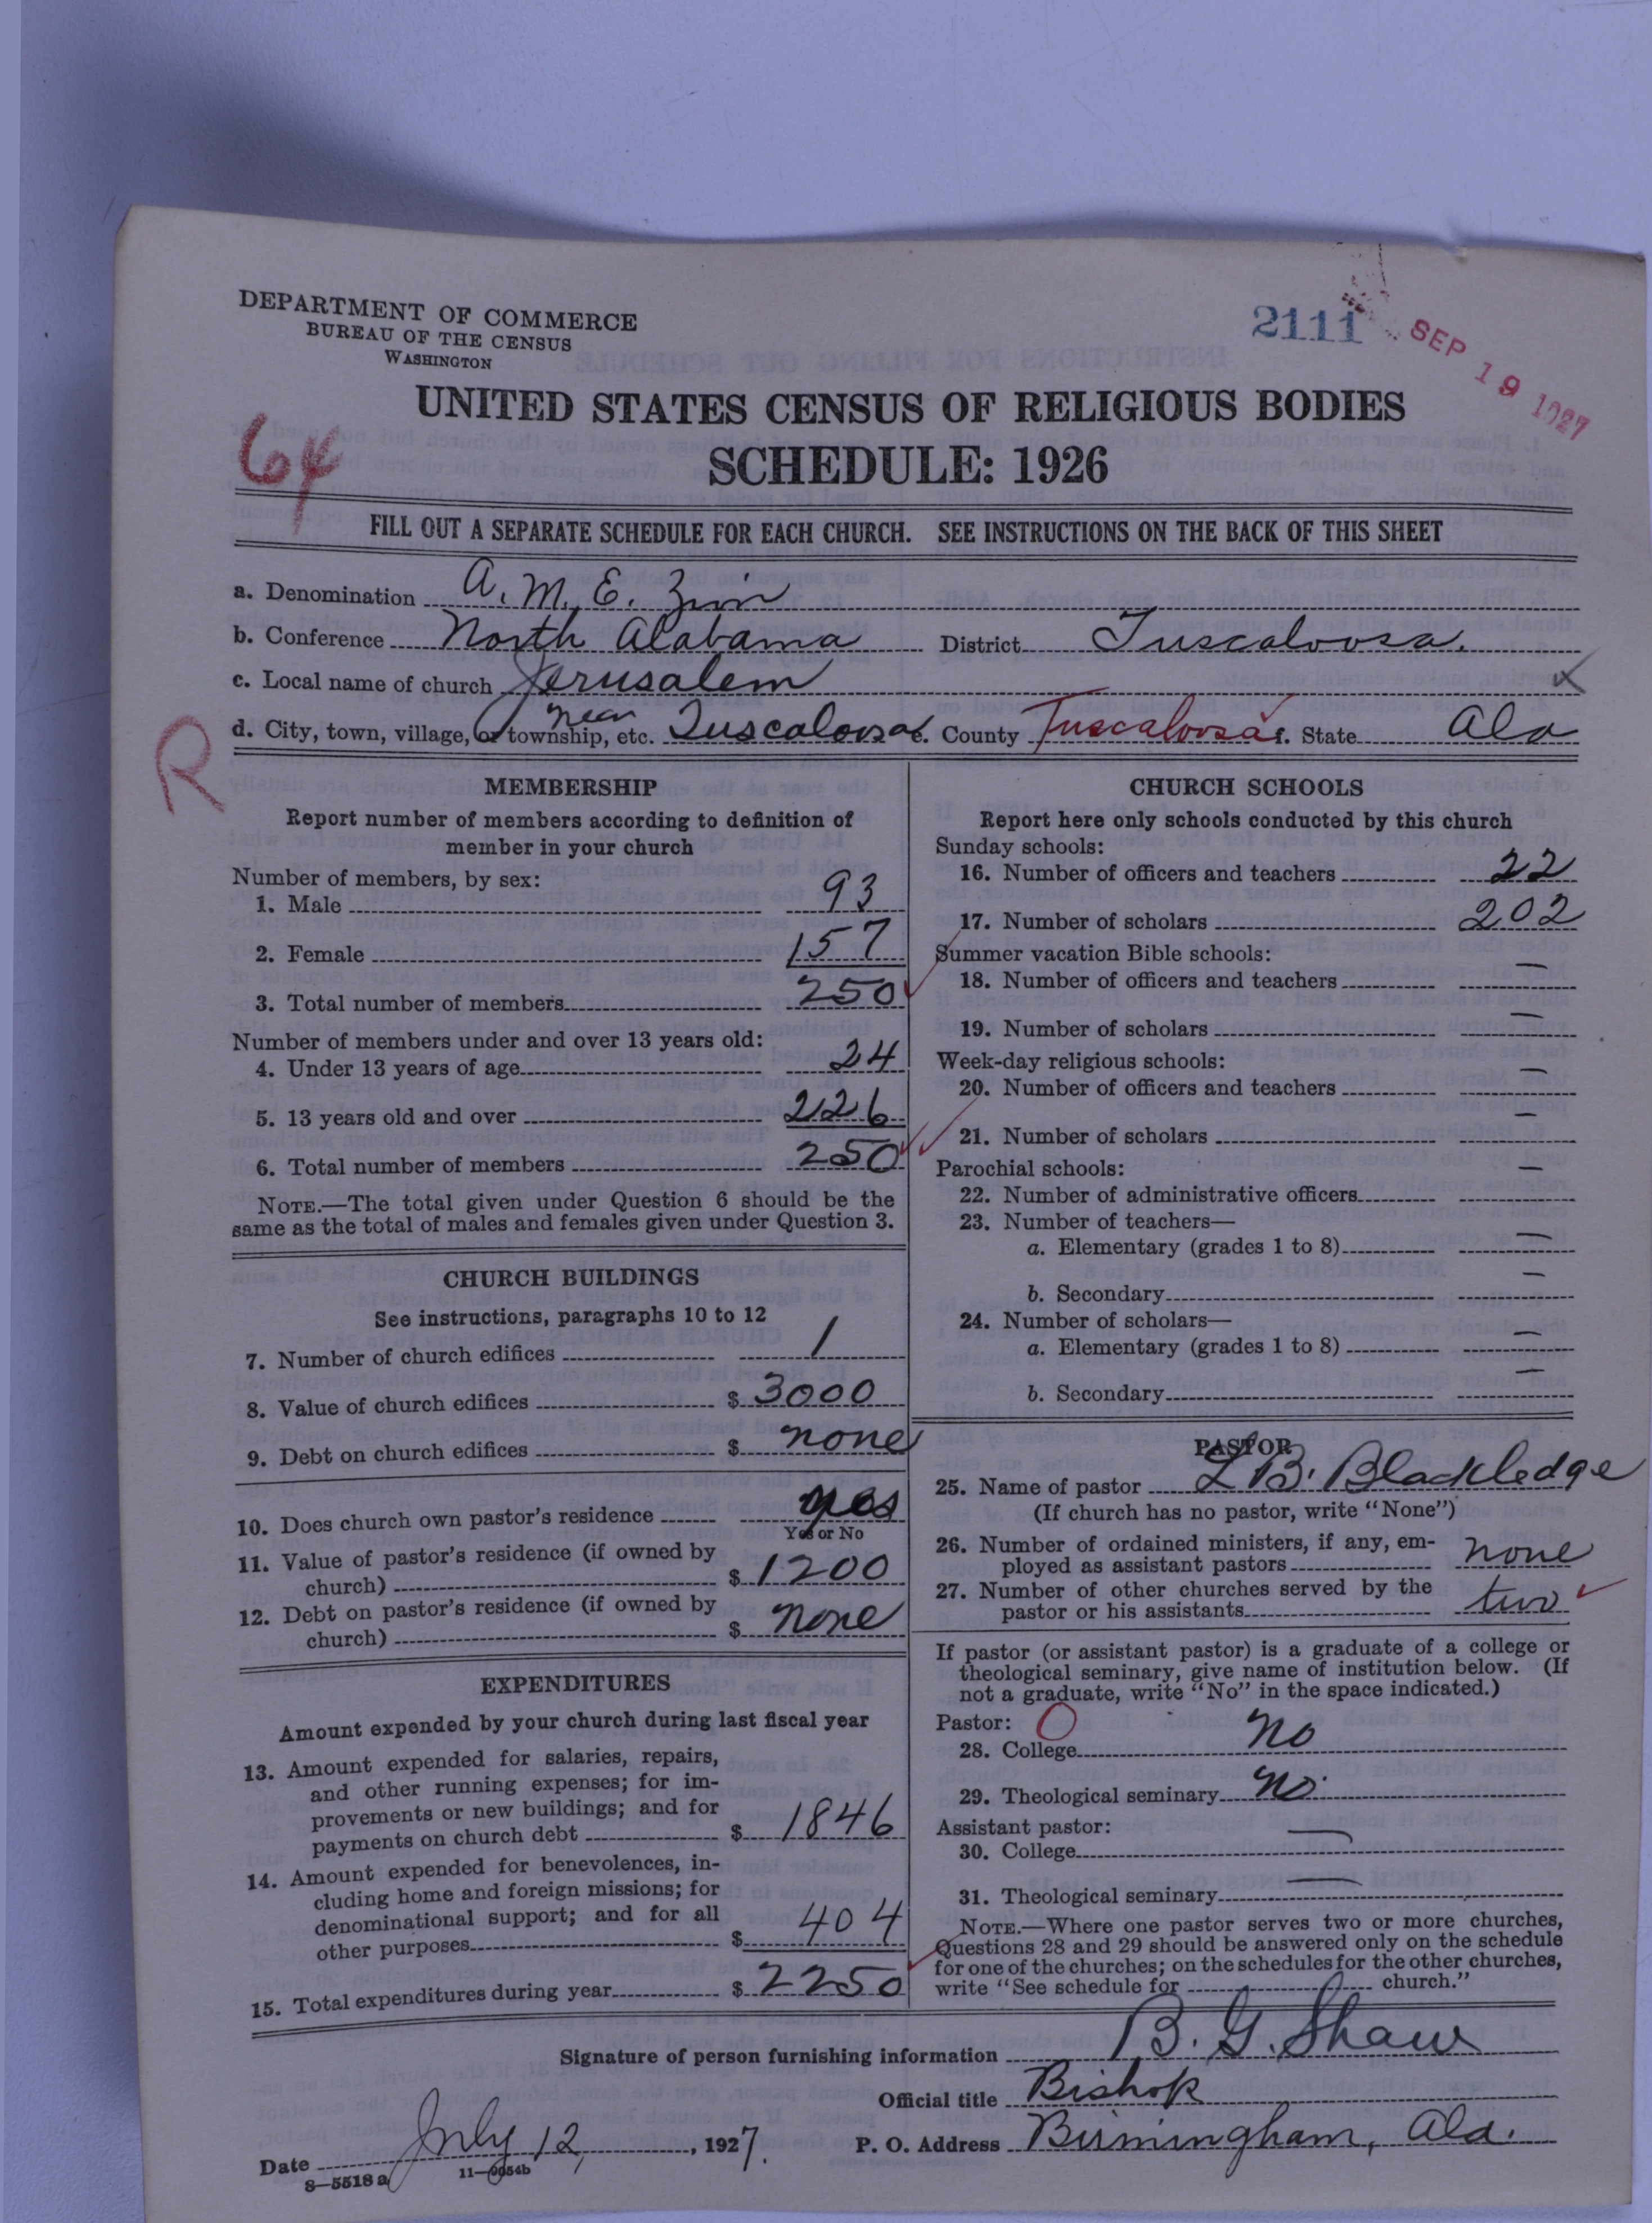 DEPARTMENT OF COMMERCE
BUREAU OF THE CENSUS
WASHINGTON
2111
SEP 19 1927
UNITED STATES CENSUS OF RELIGIOUS BODIES
SCHEDULE: 1926
64
FILL OUT A SEPARATE SCHEDULE FOR EACH CHURCH. SEE INSTRUCTIONS ON THE BACK OF THIS SHEET
a. Denomination A. M. E. Zion
b. Conference North Alabama District Tuscaloosa.
c. Local name of church Jerusalem
R
d. City, town, village, or township, etc. near Tuscaloosa e. County Tuscaloosa f. State Ala
MEMBERSHIP
Report number of members according to definition of
member in your church
Number of members, by sex:
1. Male 93
2. Female 157
3. Total number of members 250
Number of members under and over 13 years old:
4. Under 13 years of age 24
5. 13 years old and over 226
6. Total number of members 250
NOTE.—The total given under Question 6 should be the
same as the total of males and females given under Question 3.
CHURCH BUILDINGS
See instructions, paragraphs 10 to 12
7. Number of church edifices 1
8. Value of church edifices $ 3000
9. Debt on church edifices $ none
10. Does church own pastor's residence yes
Yes or No
11. Value of pastor's residence (if owned by
church) $ 1200
12. Debt on pastor's residence (if owned by
church) $ none
EXPENDITURES
Amount expended by your church during last fiscal year
13. Amount expended for salaries, repairs,
and other running expenses; for im-
provements or new buildings; and for
payments on church debt $ 1846
14. Amount expended for benevolences, in-
cluding home and foreign missions; for
denominational support; and for all
other purposes $ 404
15. Total expenditures during year $ 2250
CHURCH SCHOOLS
Report here only schools conducted by this church
Sunday schools:
16. Number of officers and teachers 22
17. Number of scholars 202
Summer vacation Bible schools:
18. Number of officers and teachers —
19. Number of scholars —
Week-day religious schools:
20. Number of officers and teachers —
21. Number of scholars —
Parochial schools:
22. Number of administrative officers —
23. Number of teachers—
a. Elementary (grades 1 to 8) —
b. Secondary —
24. Number of scholars—
a. Elementary (grades 1 to 8) —
b. Secondary —
PASTOR
25. Name of pastor L B. Blackledge
(If church has no pastor, write "None")
26. Number of ordained ministers, if any, em-
ployed as assistant pastors none
27. Number of other churches served by the
pastor or his assistants two
If pastor (or assistant pastor) is a graduate of a college or
theological seminary, give name of institution below. (If
not a graduate, write "No" in the space indicated.)
Pastor: O
28. College no
29. Theological seminary no
Assistant pastor:
30. College —
31. Theological seminary —
NOTE.—Where one pastor serves two or more churches,
Questions 28 and 29 should be answered only on the schedule
for one of the churches; on the schedules for the other churches,
write "See schedule for church."
Signature of person furnishing information B. G. Shaw
Official title Bishop
Date July 12, 1927. P. O. Address Birmingham, Ala.
8—5518 a 11—9054b